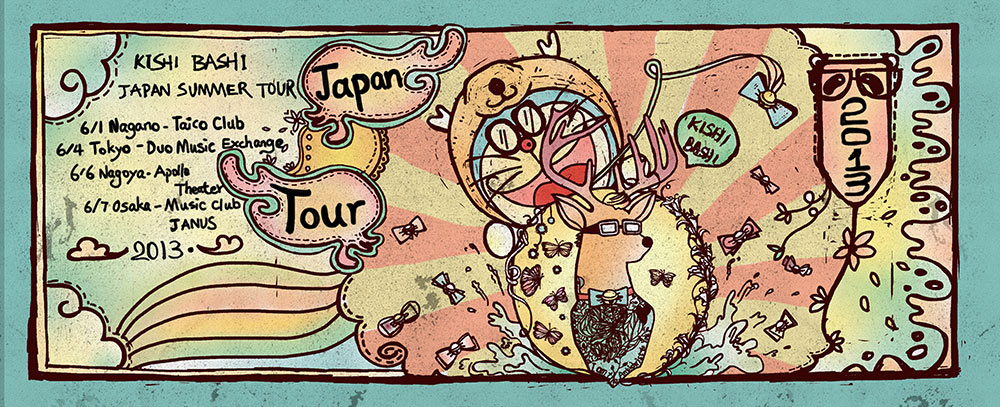 KISHI BASHI
JAPAN SUMMER TOUR
6/1 Nagano - Taico Club
6/4 Tokyo - Duo Music Exchange
6/6 Nagoya - Apollo
Theater
6/7 Osaka - Music Club
JANUS
2013
Japan
Tour
KISHI
BASHI
2013